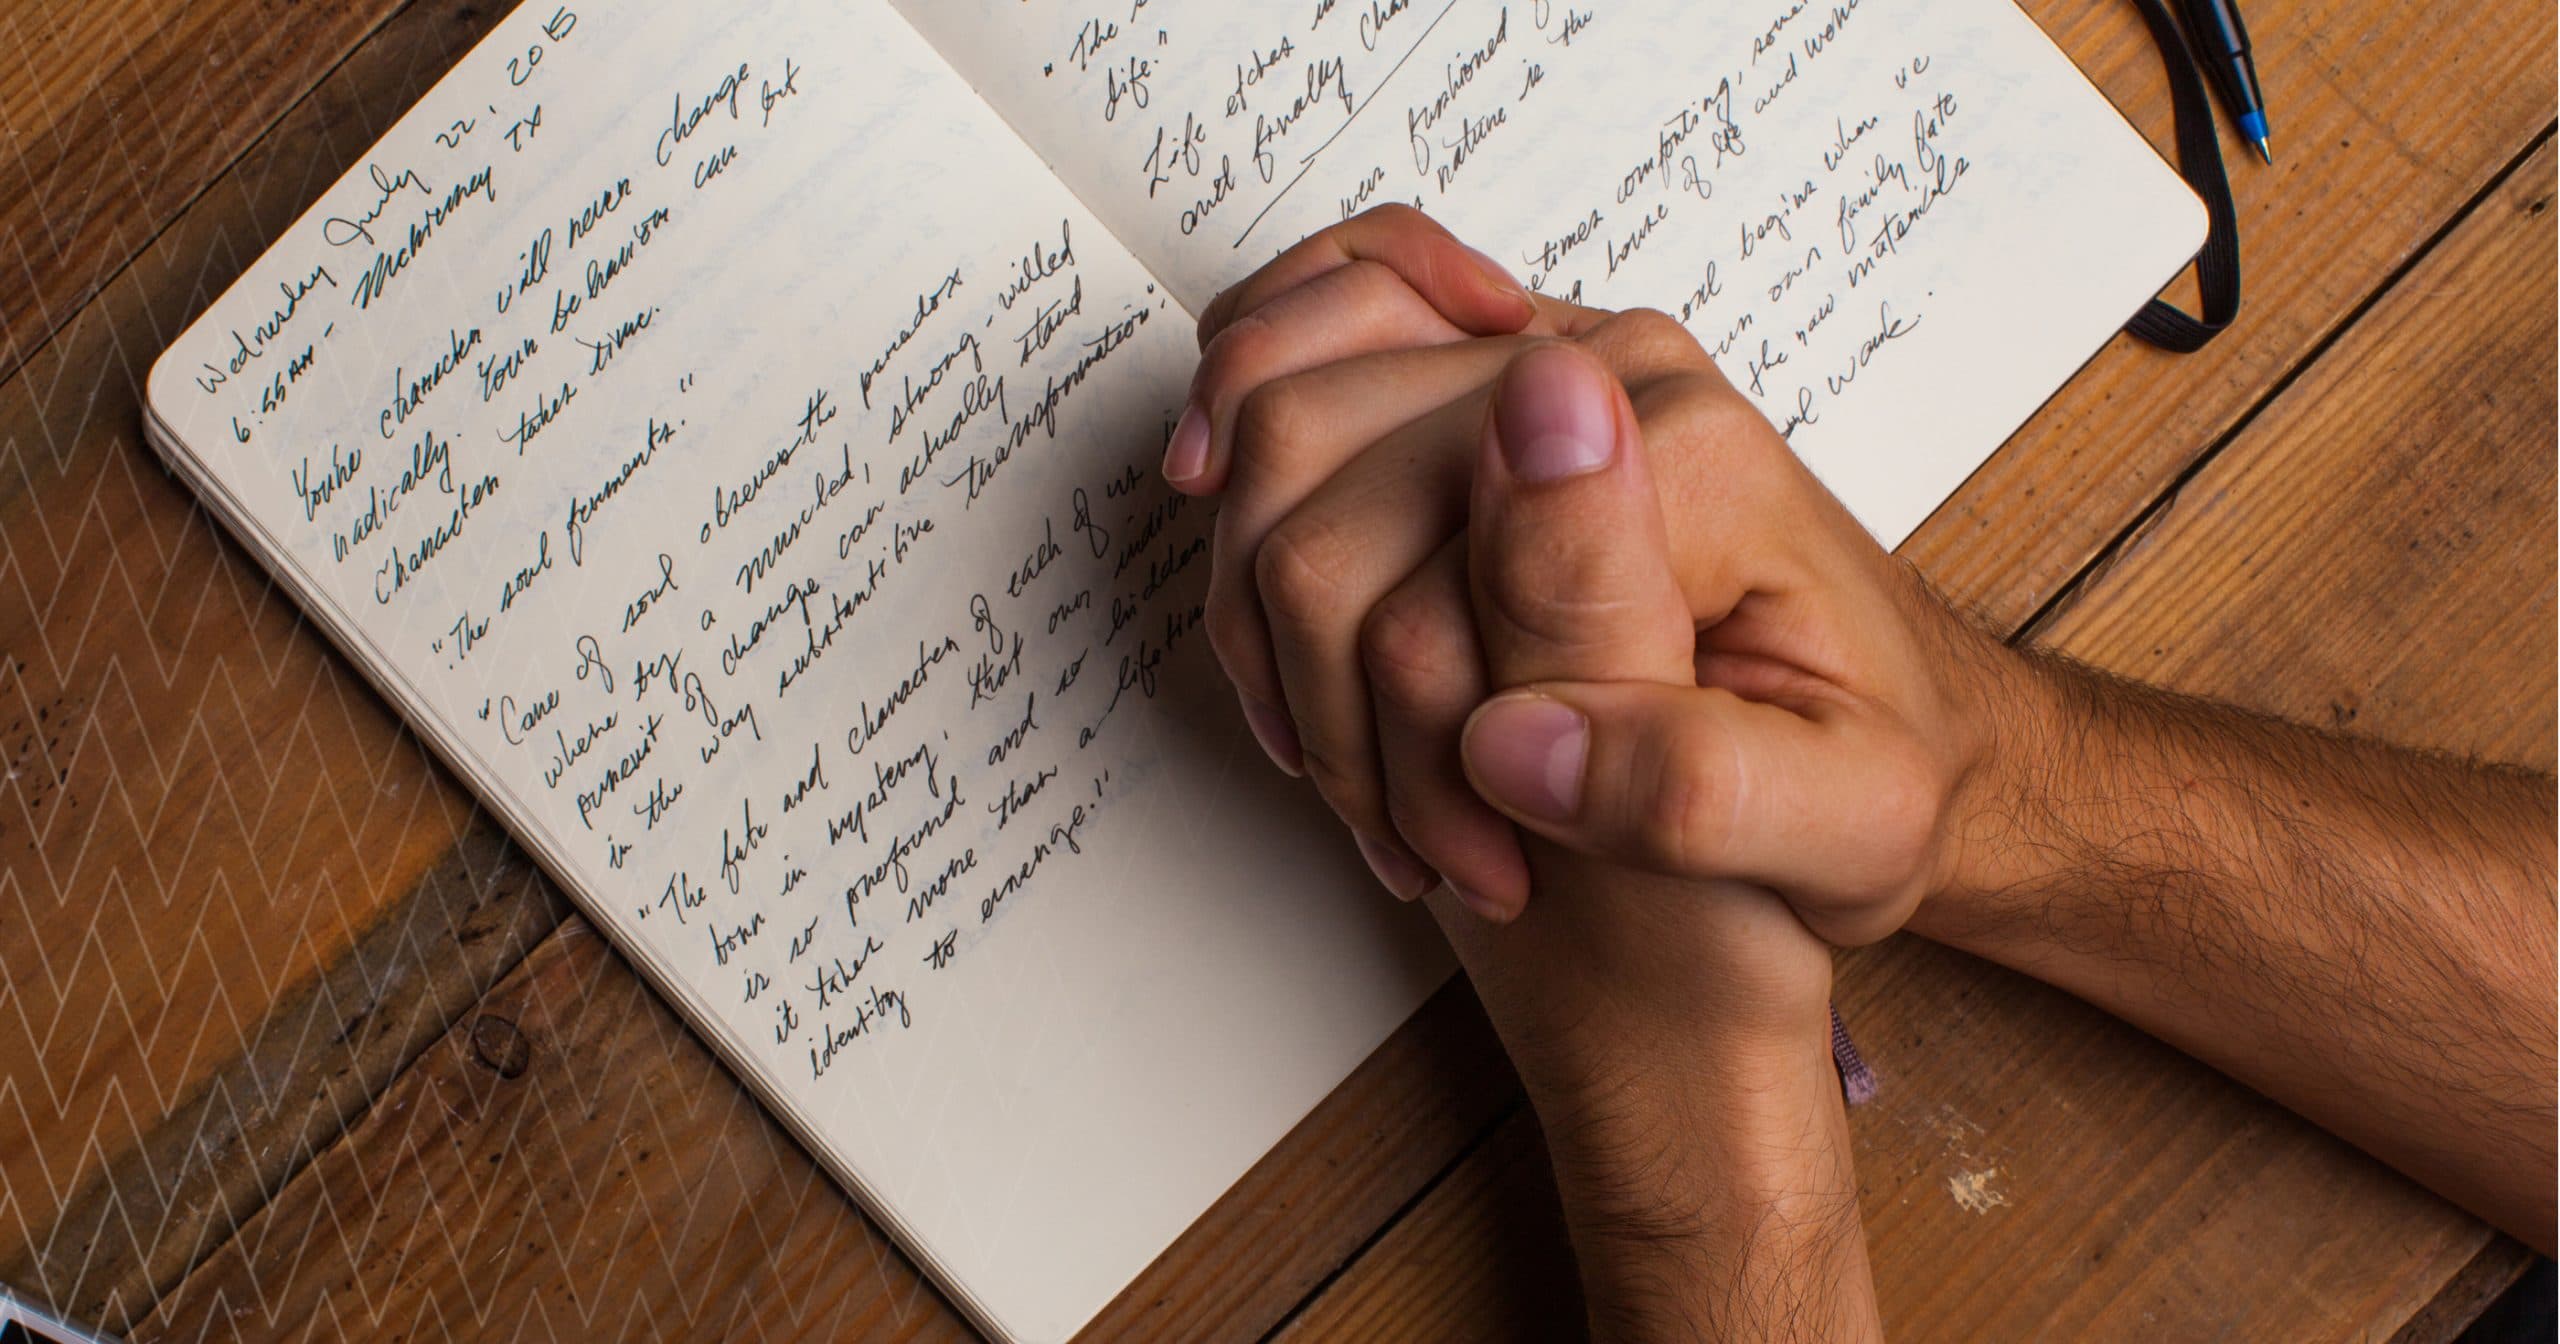 Wednesday July 22, 2015
6:55AM - McKinney TX
You're character will never change
radically. Your behavior can but
Character takes time.
"The soul ferments."
"Care of soul observes the paradox
where by a muscled, strong-willed
pursuit of change can actually stand
in the way substantitive transformation."
"The fate and character of each of us is
born in mystery, that our individ
is so profound and so hidden
it takes more than a lifetime
identity to emerge."
"The
life."
Life etches
and finally
fashioned
nature is the
etimes comforting,
house of life and
begins when we
own family fate
the raw materials
work.